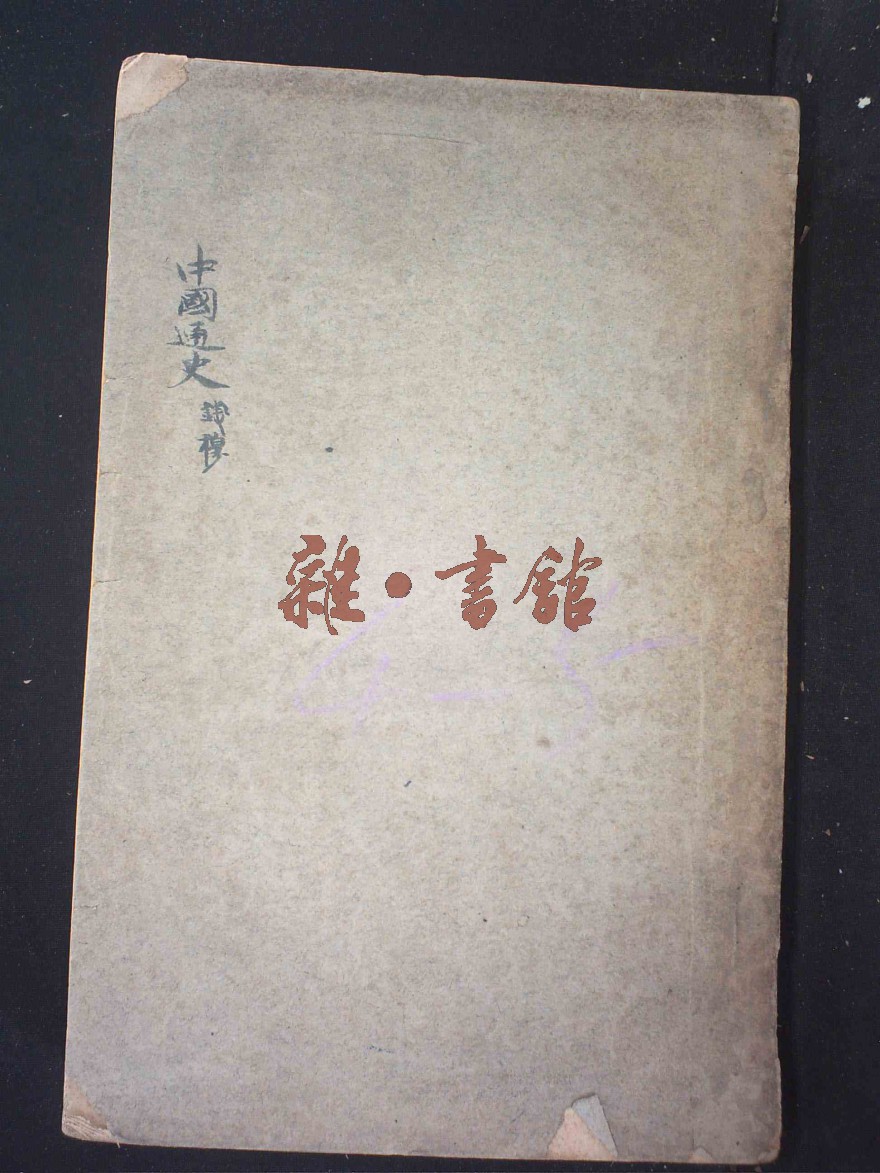 中國通史
錢穆
雜·書館